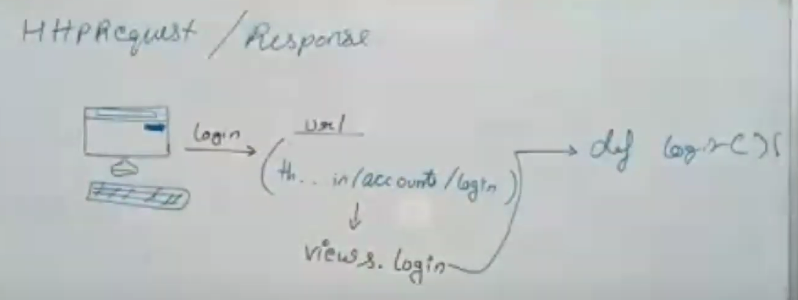 HttpRequest / Response
login
url
(th.. in/accounts/login)
views.login
def login() {